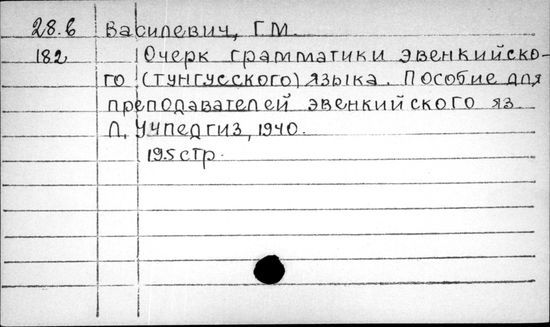 28.6 Василевич, Г.М.
182 Очерк грамматики эвенкийско-
го (тунгусского) языка. Пособие для
преподавателей эвенкийского яз
Л, Учпедгиз, 1940.
195 стр.